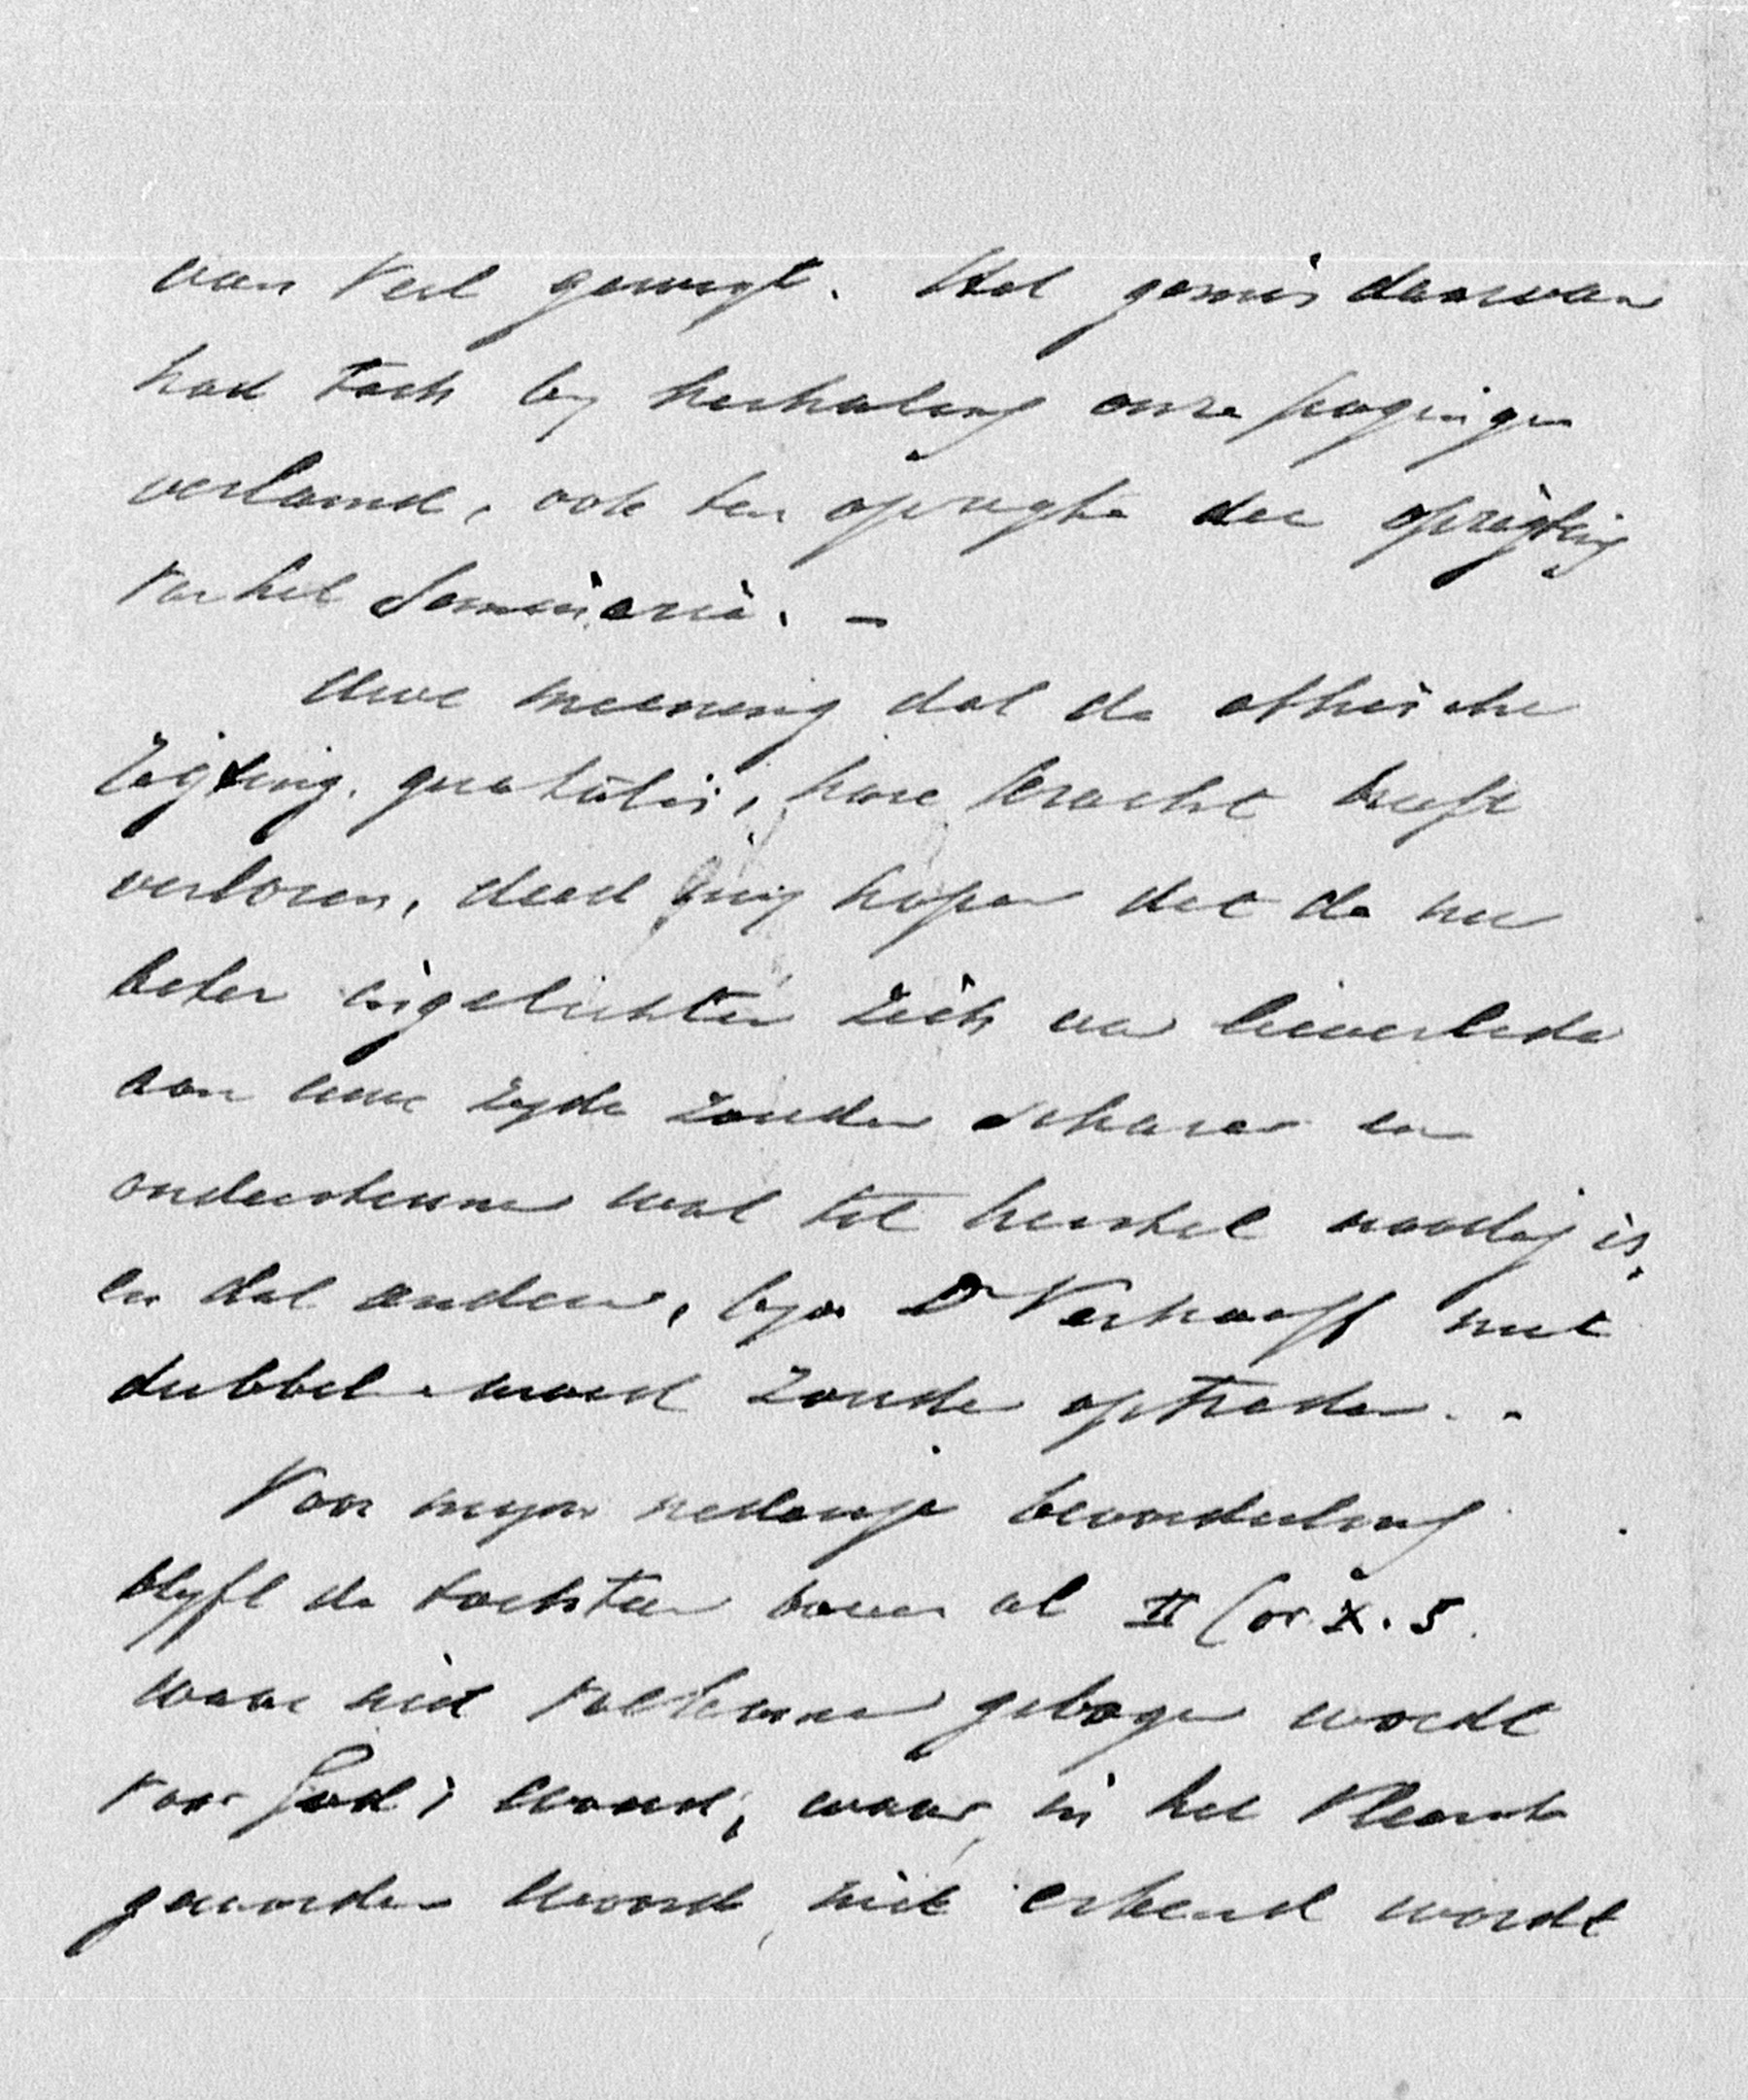 van veel gewigt. Het gemis daarvan
had toch by herhaling onze pogingen
verlamd, ook ten opzigte der oprigting
van het Seminarie. –
Uwe meening dat de ethische
rigting, quatalis, hare kracht heeft
verloren, deed my hopen dat de nu
beter ingelichten zich van lieverlede
aan uwe zyde zouden scharen en
ondersteunen wat tot herstel noodig is,
en dat anderen, byv. Dr Verhoeff met
dubbel moed zouden optreden. -
Voor myne nederige beoordeeling
blyft de toetssteen boven al II Cor. X. 5.
waar niet volkomen gebogen wordt
voor God's woord, waar in het Vleesch
geworden Woord, niet erkend wordt